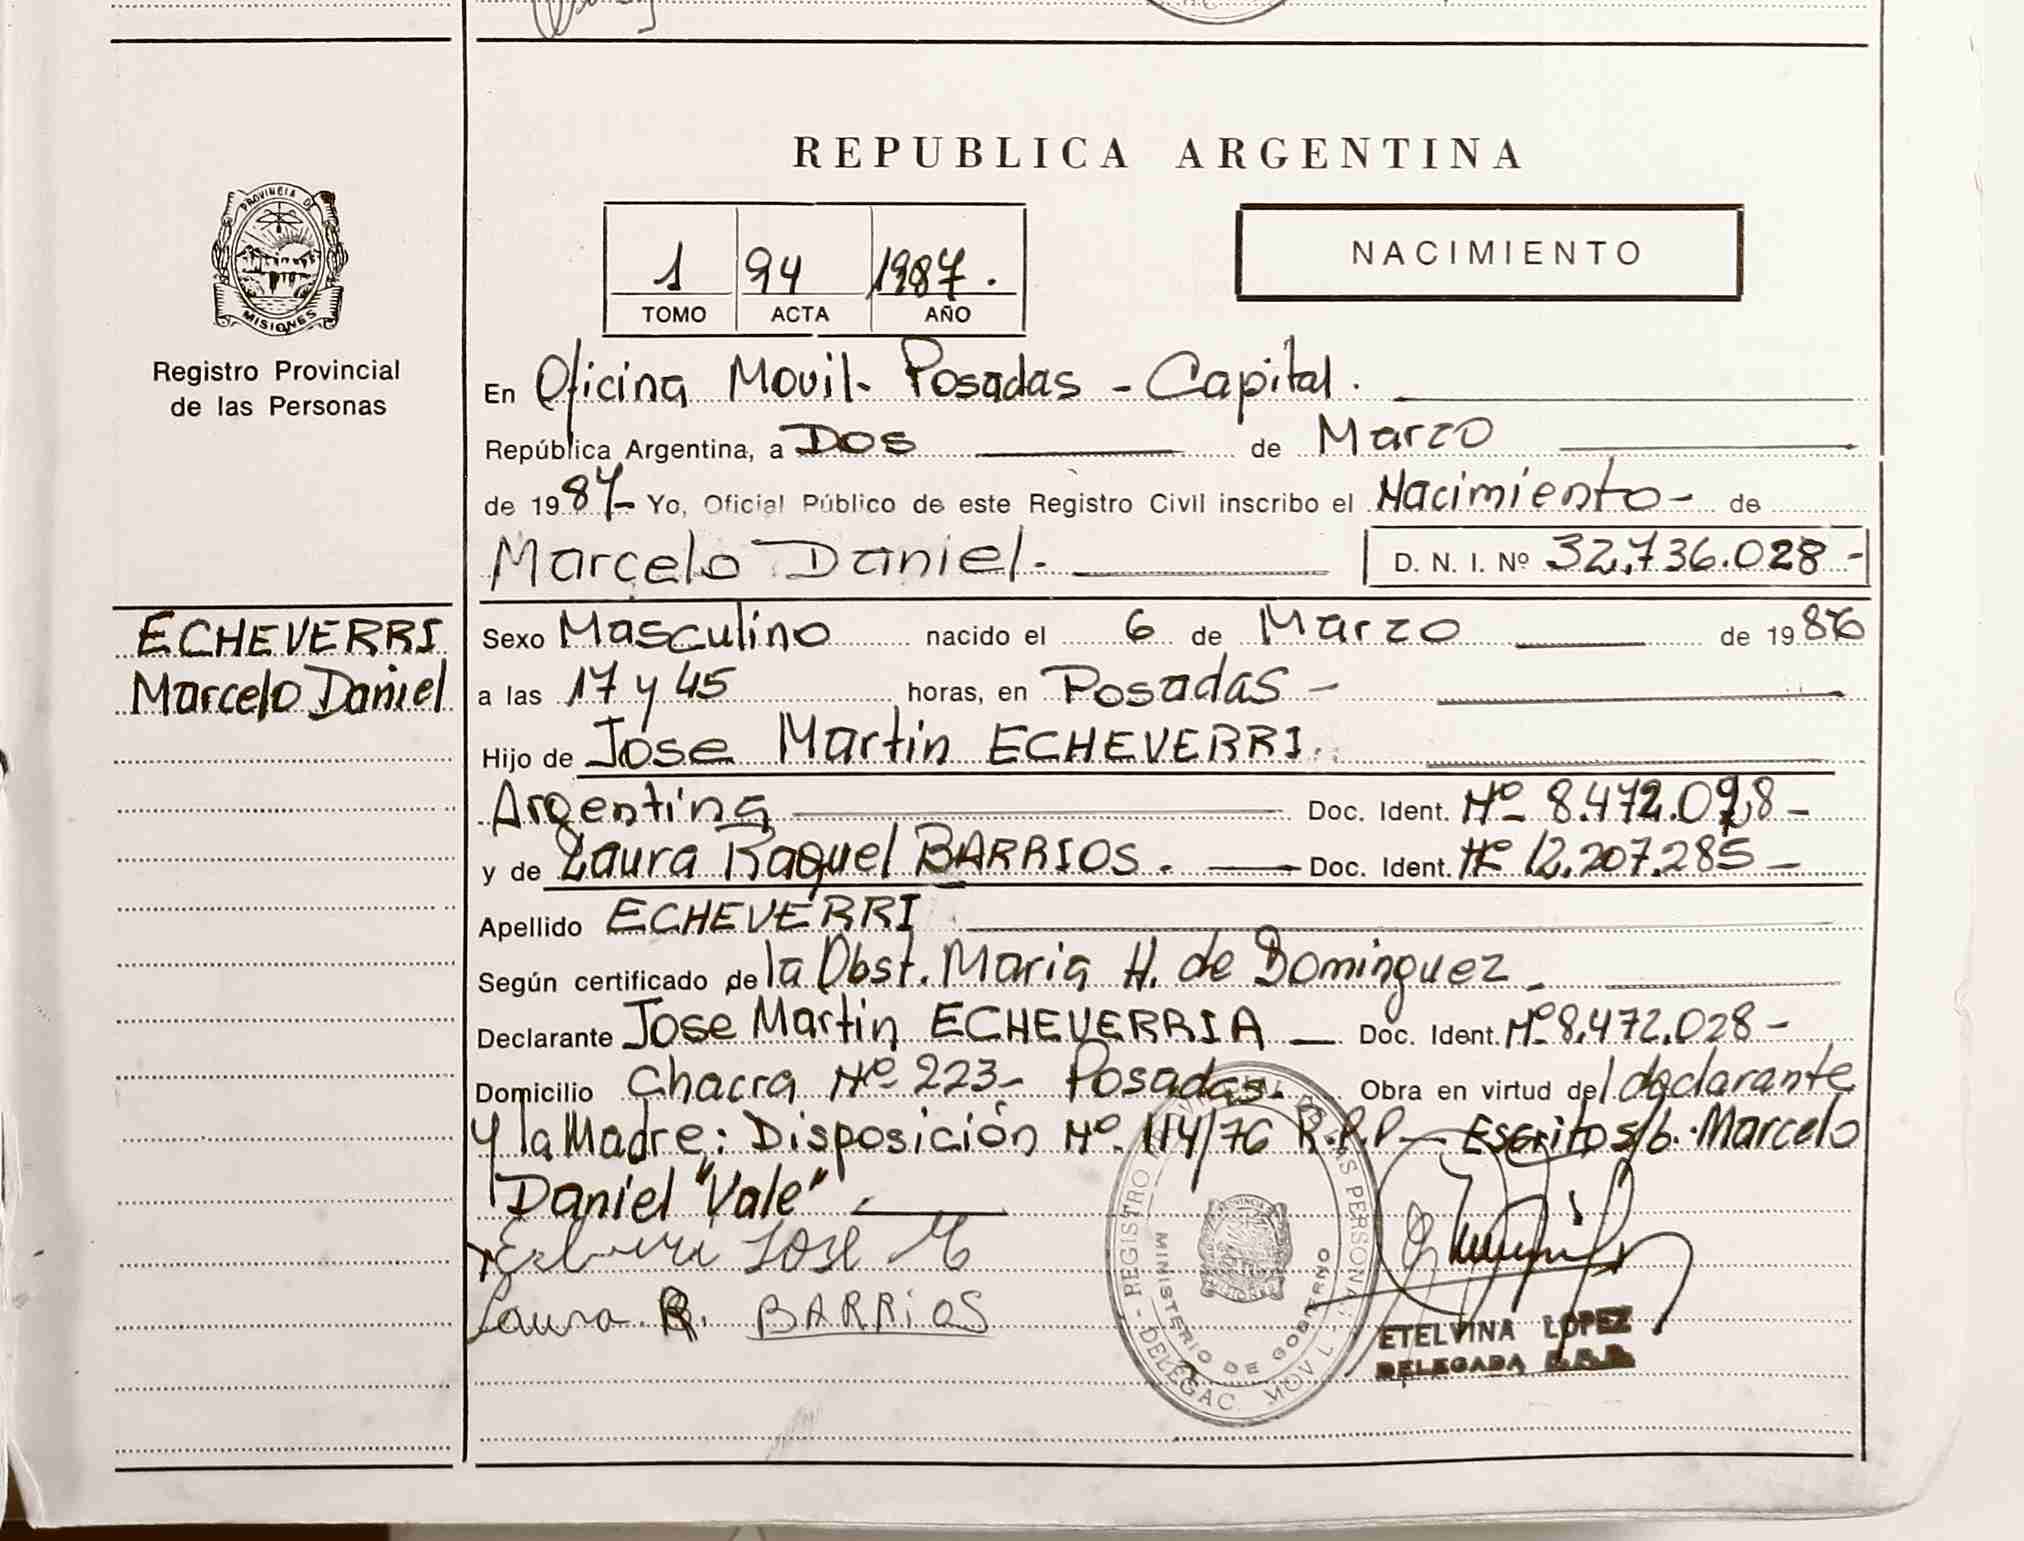 REPUBLICA ARGENTINA
PROVINCIA DE
MISIONES
Registro Provincial
de las Personas
1 94 1987.
TOMO ACTA AÑO
NACIMIENTO
En Oficina Movil- Posadas - Capital.
República Argentina, a Dos de Marzo
de 1987- Yo, Oficial Público de este Registro Civil inscribo el Nacimiento- de
Marcelo Daniel- D. N. I. Nº 32.736.028-
ECHEVERRI
Marcelo Daniel
Sexo Masculino nacido el 6 de Marzo de 1986
a las 17 y 45 horas, en Posadas -
Hijo de Jose Martin ECHEVERRI.
Argentina Doc. Ident. Nº 8.472.028-
y de Laura Raquel BARRIOS. Doc. Ident. Nº 12.207.285-
Apellido ECHEVERRI
Según certificado de la Obst. Maria H. de Dominguez -
Declarante Jose Martin ECHEVERRIA - Doc. Ident. Nº 8.472.028-
Domicilio Chacra Nº 223- Posadas. Obra en virtud del declarante
y la Madre: Disposición Nº 114/76 R.P.P- Escrito s/b. Marcelo
Daniel "Vale"
Jose M
Laura R. BARRiOS
REGISTRO PERSONAS
MINISTERIO DE GOBIERNO
DELEGAC. MOVIL
PROVINCIA
ETELVINA LOPEZ
DELEGADA